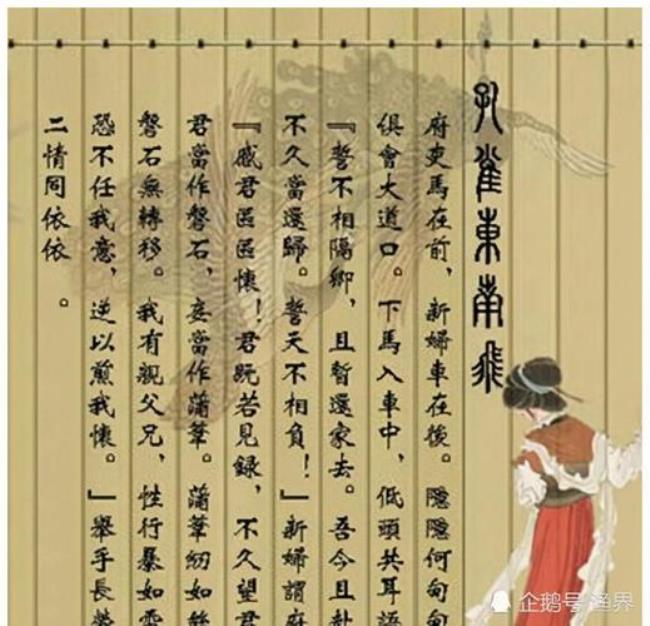 孔雀東南飛
府吏馬在前，新婦車在後。隱隱何甸甸
俱會大道口。下馬入車中，低頭共耳語
『誓不相隔卿，且暫還家去。吾今且赴
不久當還歸。誓天不相負！』新婦謂府
『感君區區懷！君既若見録，不久望君
君當作磐石，妾當作蒲葦。蒲葦紉如絲
磐石無轉移。我有親父兄，性行暴如雷
恐不任我意，逆以煎我懷。』舉手長勞
二情同依依。
企鹅号 渔界